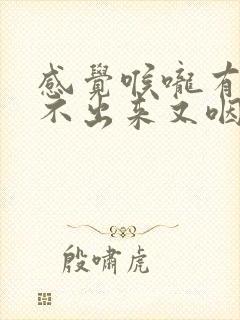 感覺喉嚨有
不出来又咽
殷嘯虎